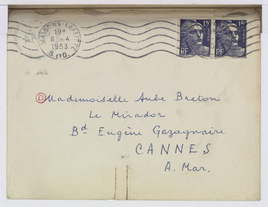 MAISONS-LAFFITTE
19H
8-4
1953
S.&O.
15F 15F
RF RF
Mademoiselle Aube Breton
Le Mirador
Bd Eugène Gazagnaire
CANNES
A. Mar.